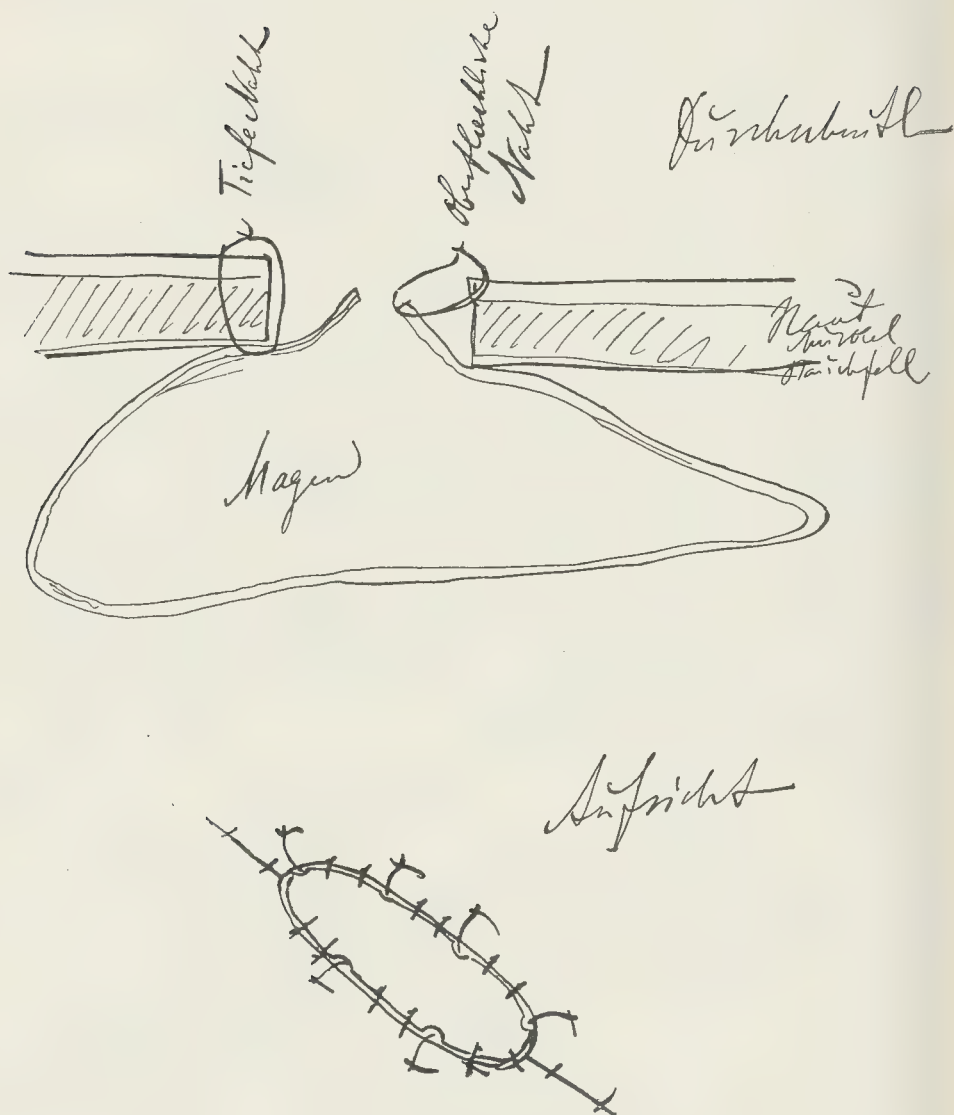 Tiefe Naht
Oberflaechliche
Naht
Durchschnitt
Haut
Muskel
Bauchfell
Magen
Aufsicht